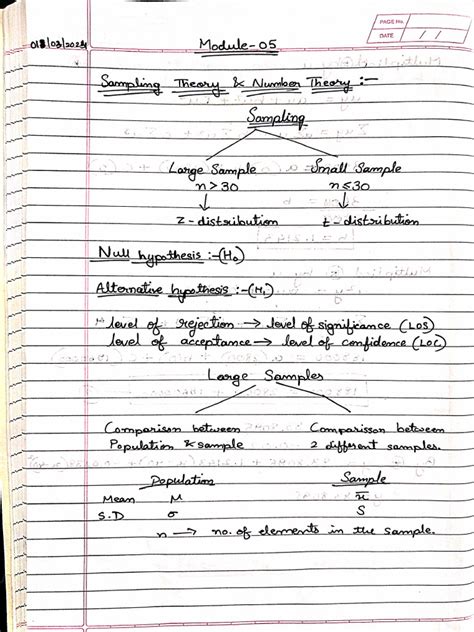 PAGE No.
DATE / /
01/03/2024
Module-05
Sampling Theory & Number Theory :-
Sampling
Large Sample Small Sample
n > 30 n ≤ 30
↓ ↓
z - distribution t - distribution
Null hypothesis :- (H₀)
Alternative hypothesis :- (H₁)
level of rejection → level of significance (LOS)
level of acceptance → level of confidence (LOC)
Large Samples
Comparison between Comparison between
Population & sample 2 different samples.
Population Sample
Mean μ x̄
S.D σ S
n → no. of elements in the sample.